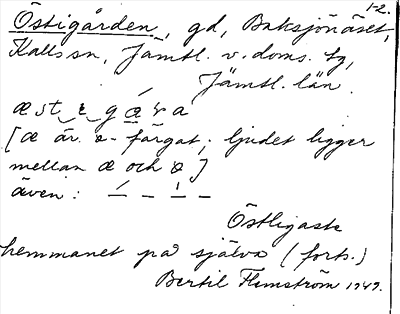 1-2.
Östigården, gd, Baksjönäset,
Kalls sn, Jämtl. v. doms. tg,
Jämtl. län.
æst i gɑra
[æ är ɵ-färgat; ljudet ligger
mellan æ och ɵ]
även:
Östligaste
hemmanet på själva (forts.)
Bertil Flemström 1949.